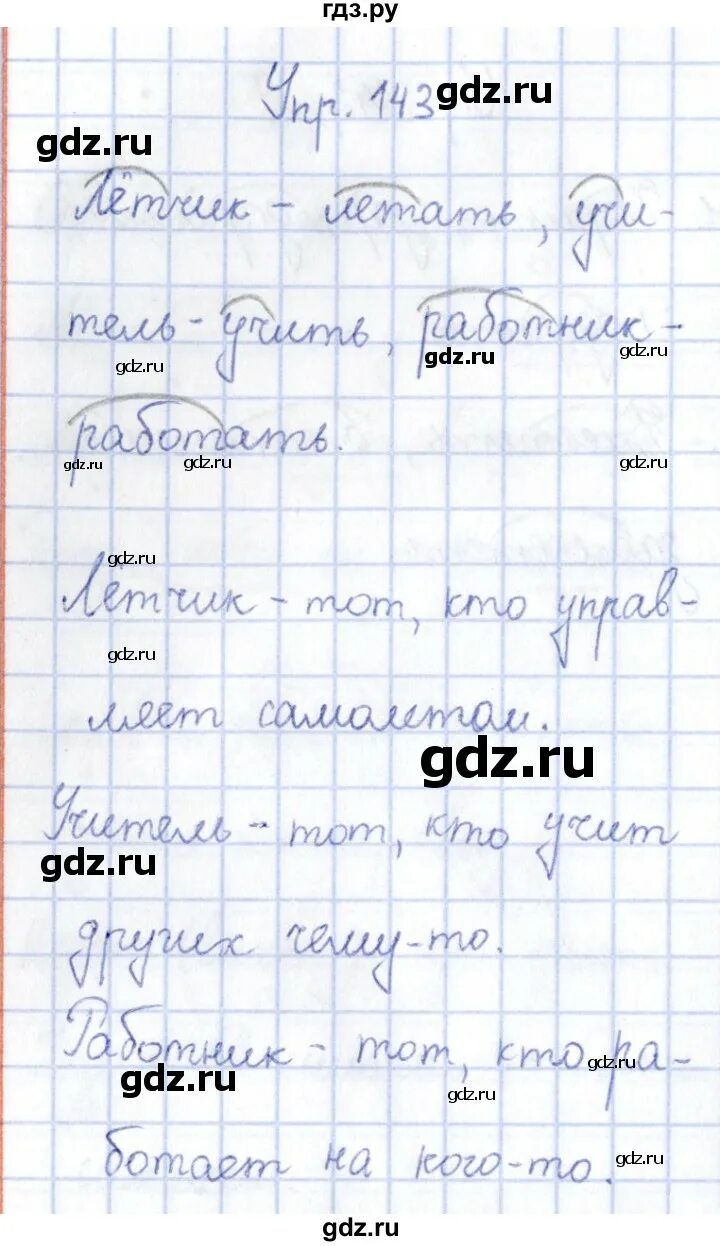 гдз.ру
Упр. 143 gdz.ru
gdz.ru
Лётчик - летать, учи-
тель - учить, работник -
gdz.ru gdz.ru gdz.ru
работать.
gdz.ru gdz.ru gdz.ru
gdz.ru
Лётчик - тот, кто управ-
gdz.ru
ляет самолетом.
gdz.ru
Учитель - тот, кто учит
gdz.ru
других чему-то.
Работник - тот, кто ра-
gdz.ru gdz.ru gdz.ru
ботает на кого-то.
gdz.ru
gdz.ru